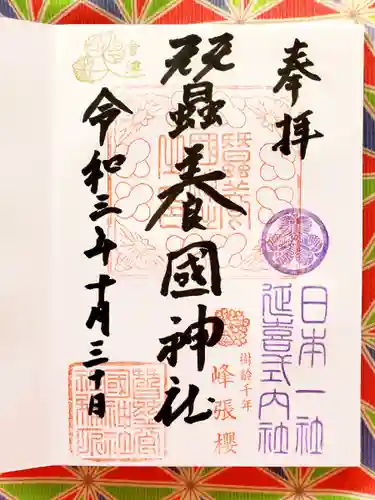 奉拝
日本一社
延喜式内社
蠶養國神社
樹齢千年
峰張櫻
会津
令和三年十月三十日